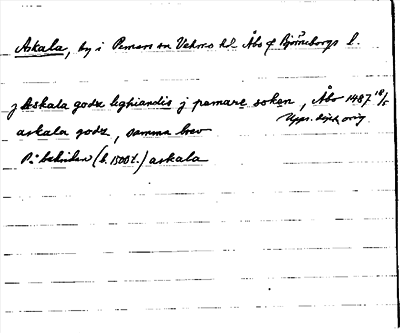 Askala, by i Pemars sn Vehmo hd Åbo & Björneborgs l.
j Askala godz lighiandis j pemare soken, Åbo 1487 18/5
Upps. dipl. orig.
askala godz, samma brev
På baksidan (b. 1500t.) askala